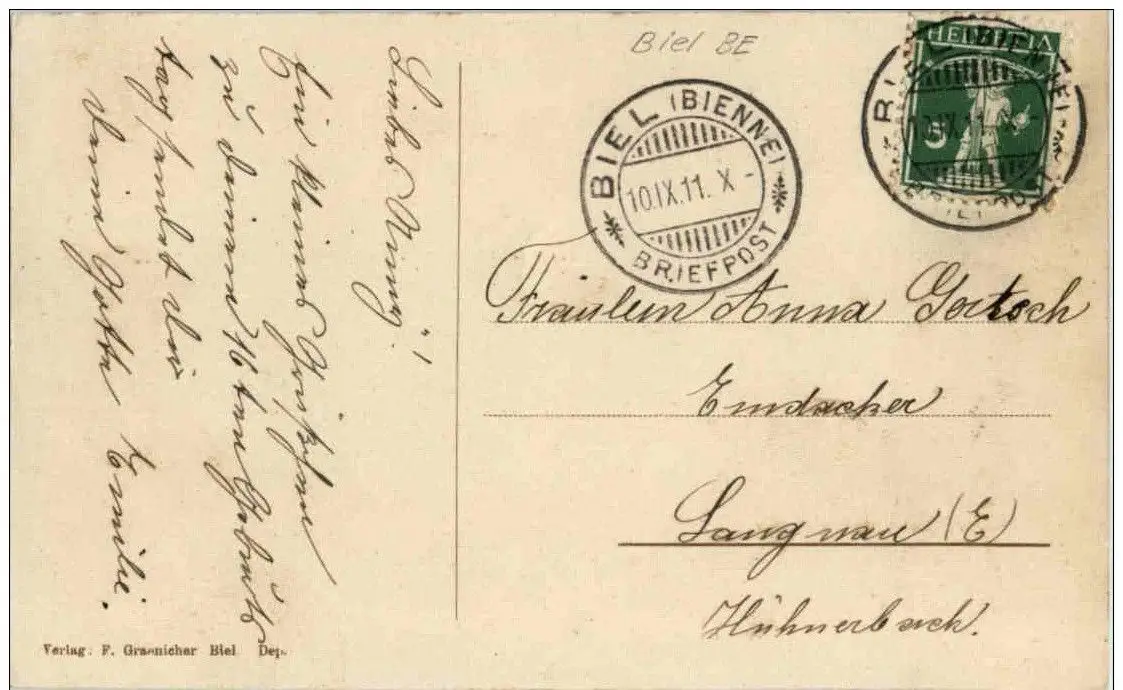 Biel BE
HELVETIA
5
BIEL (BIENNE)
10.IX.11. X -
BRIEFPOST
Fräulein Anna Gertsch
Emdacker
Langnau (E)
Hühnerbach.
Liebes Anny!
Ein kleines Grüßchen
zu deinem 16ten Geburts
tag sendet dir
deine Gotte Emilie.
Verlag. F. Graenicher Biel Dep.